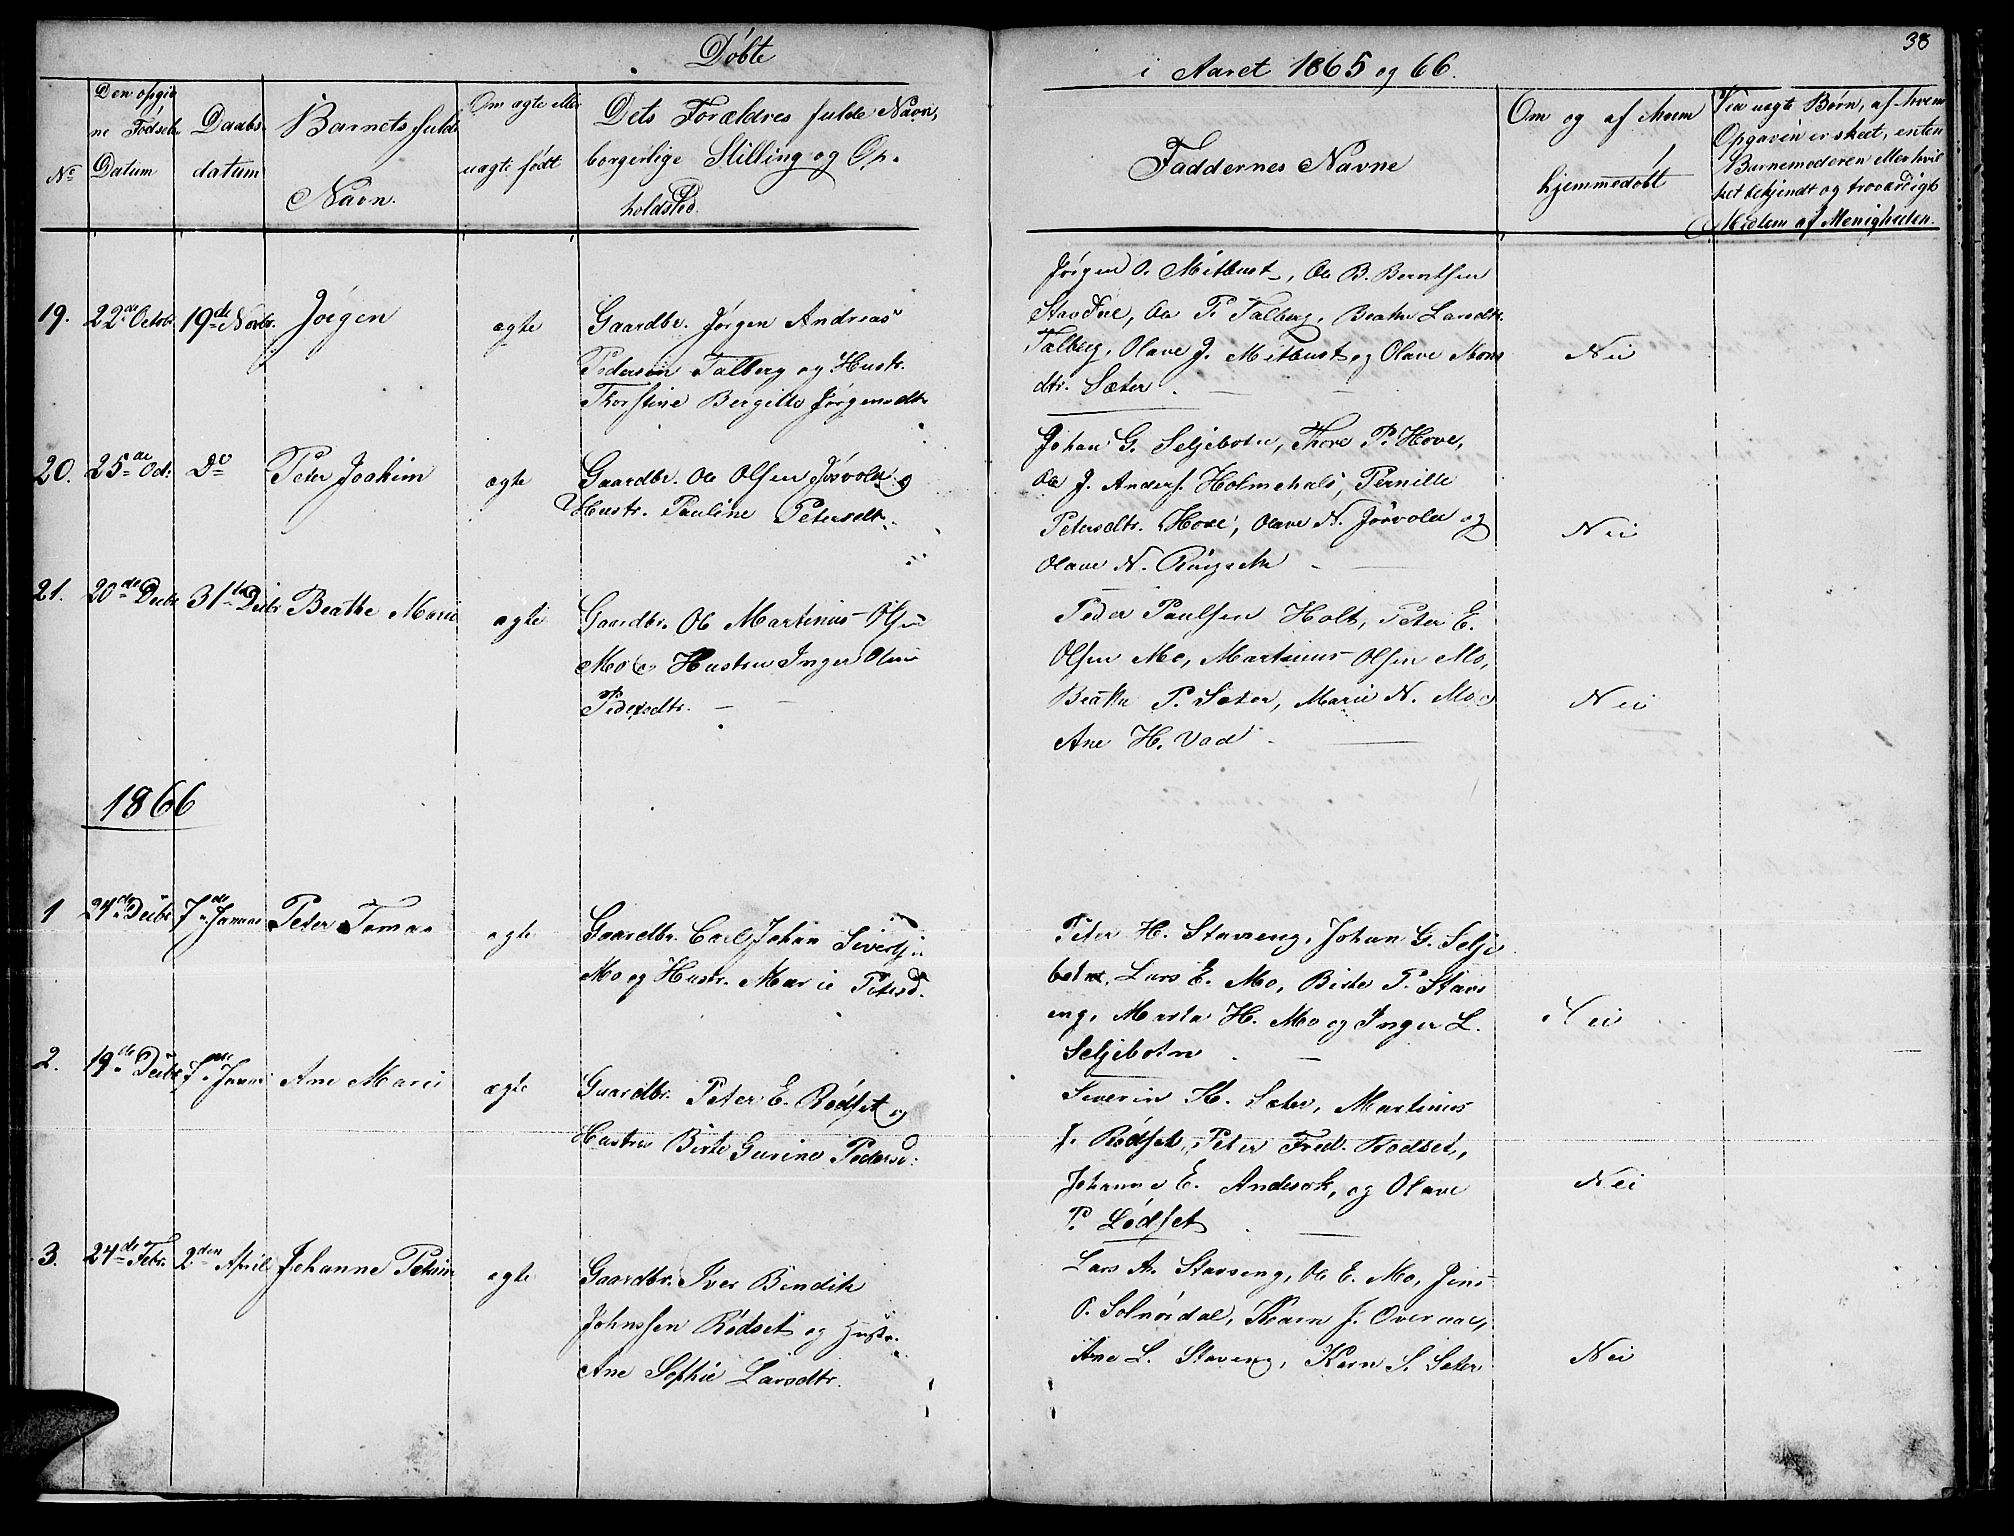 Döbte
i Aaret 1865 og 66.
38
No
Den opgiv
ne Födsels
Datum
Daabs
datum
Barnets fulde
Navn.
Om ægte eller
uægte födt
Dets Forældres fulde Navn,
borgerlige Stilling og Op-
holdsted.
Faddernes Navne
Om og af hvem
hjemmedöbt
Ved uægte Börn, af hvem
Opgaven er skeet, enten
Barnemoderen eller hvil
ket bekjendt og troværdigt
Medlem af Menigheden.
19. 22de Octobr. 19de Novbr. Jörgen ægte
Gaardbr. Jörgen Andreas
Pedersen Talberg og Hustr.
Thorstine Bergitte Jörgensdtr.
Jörgen O. Mitbust, Ole B. Berntsen
Ole P. Talberg, Beathe Larsdtr.
Talberg, Olave J. Mitbust og Olave Mons
dtr. Sæter.
Nei
20. 25de Oct. Do Peter Joakim ægte
Gaardbr. Ole Olsen Jörvold og
Hustr. Pauline Petersdtr.
Johan G. Seljebotn, Thore P. Hove,
Ole J. Anders. Holmehals, Pernille
Petersdtr. Hove, Olave N. Jörvold og
Olave N. Ringseth
Nei
21. 20de Decbr 31te Decbr Beathe Marie ægte
Gaardbr. Ole Martinus Olsen
Mo og Hustru Inger Oline
Pedersdtr.
Peder Paulsen Holt, Peter E.
Olsen Mo, Martinus Olsen Mo,
Beathe P. Sæter, Marie N. Mo og
Ane H. Vad
Nei
1866
1 24de Decbr 7de Januar Peter Tomas ægte
Gaardbr. Carl Johan Sivertsen
Mo og Hustr. Marie Petersd.
Peter H. Stavseng, Johan G. Selje
botn, Lars E. Mo, Birte P. Stavs
eng, Marta H. Mo og Inger L.
Seljebotn
Nei
2. 19de Decbr 7de Januar Ane Marie ægte
Gaardbr. Peter E. Rödset og
Hustru Birte Gurine Pedersd.
Severin H. Sæter, Martinus
J. Rödset, Peter Fred. Rodset,
Johanne E. Andesok, og Olave
P. Lödset
Nei
3. 24de Febr. 2den April Johanne Petrine ægte
Gaardbr. Iver Bendik
Johnssen Rödset og Hustr.
Ane Sophie Larsdtr.
Lars A. Stavseng, Ole E. Mo, Jens
O. Solnördal, Karn J. Overaae,
Ane L. Staveng, Karn S. Sæter
Nei